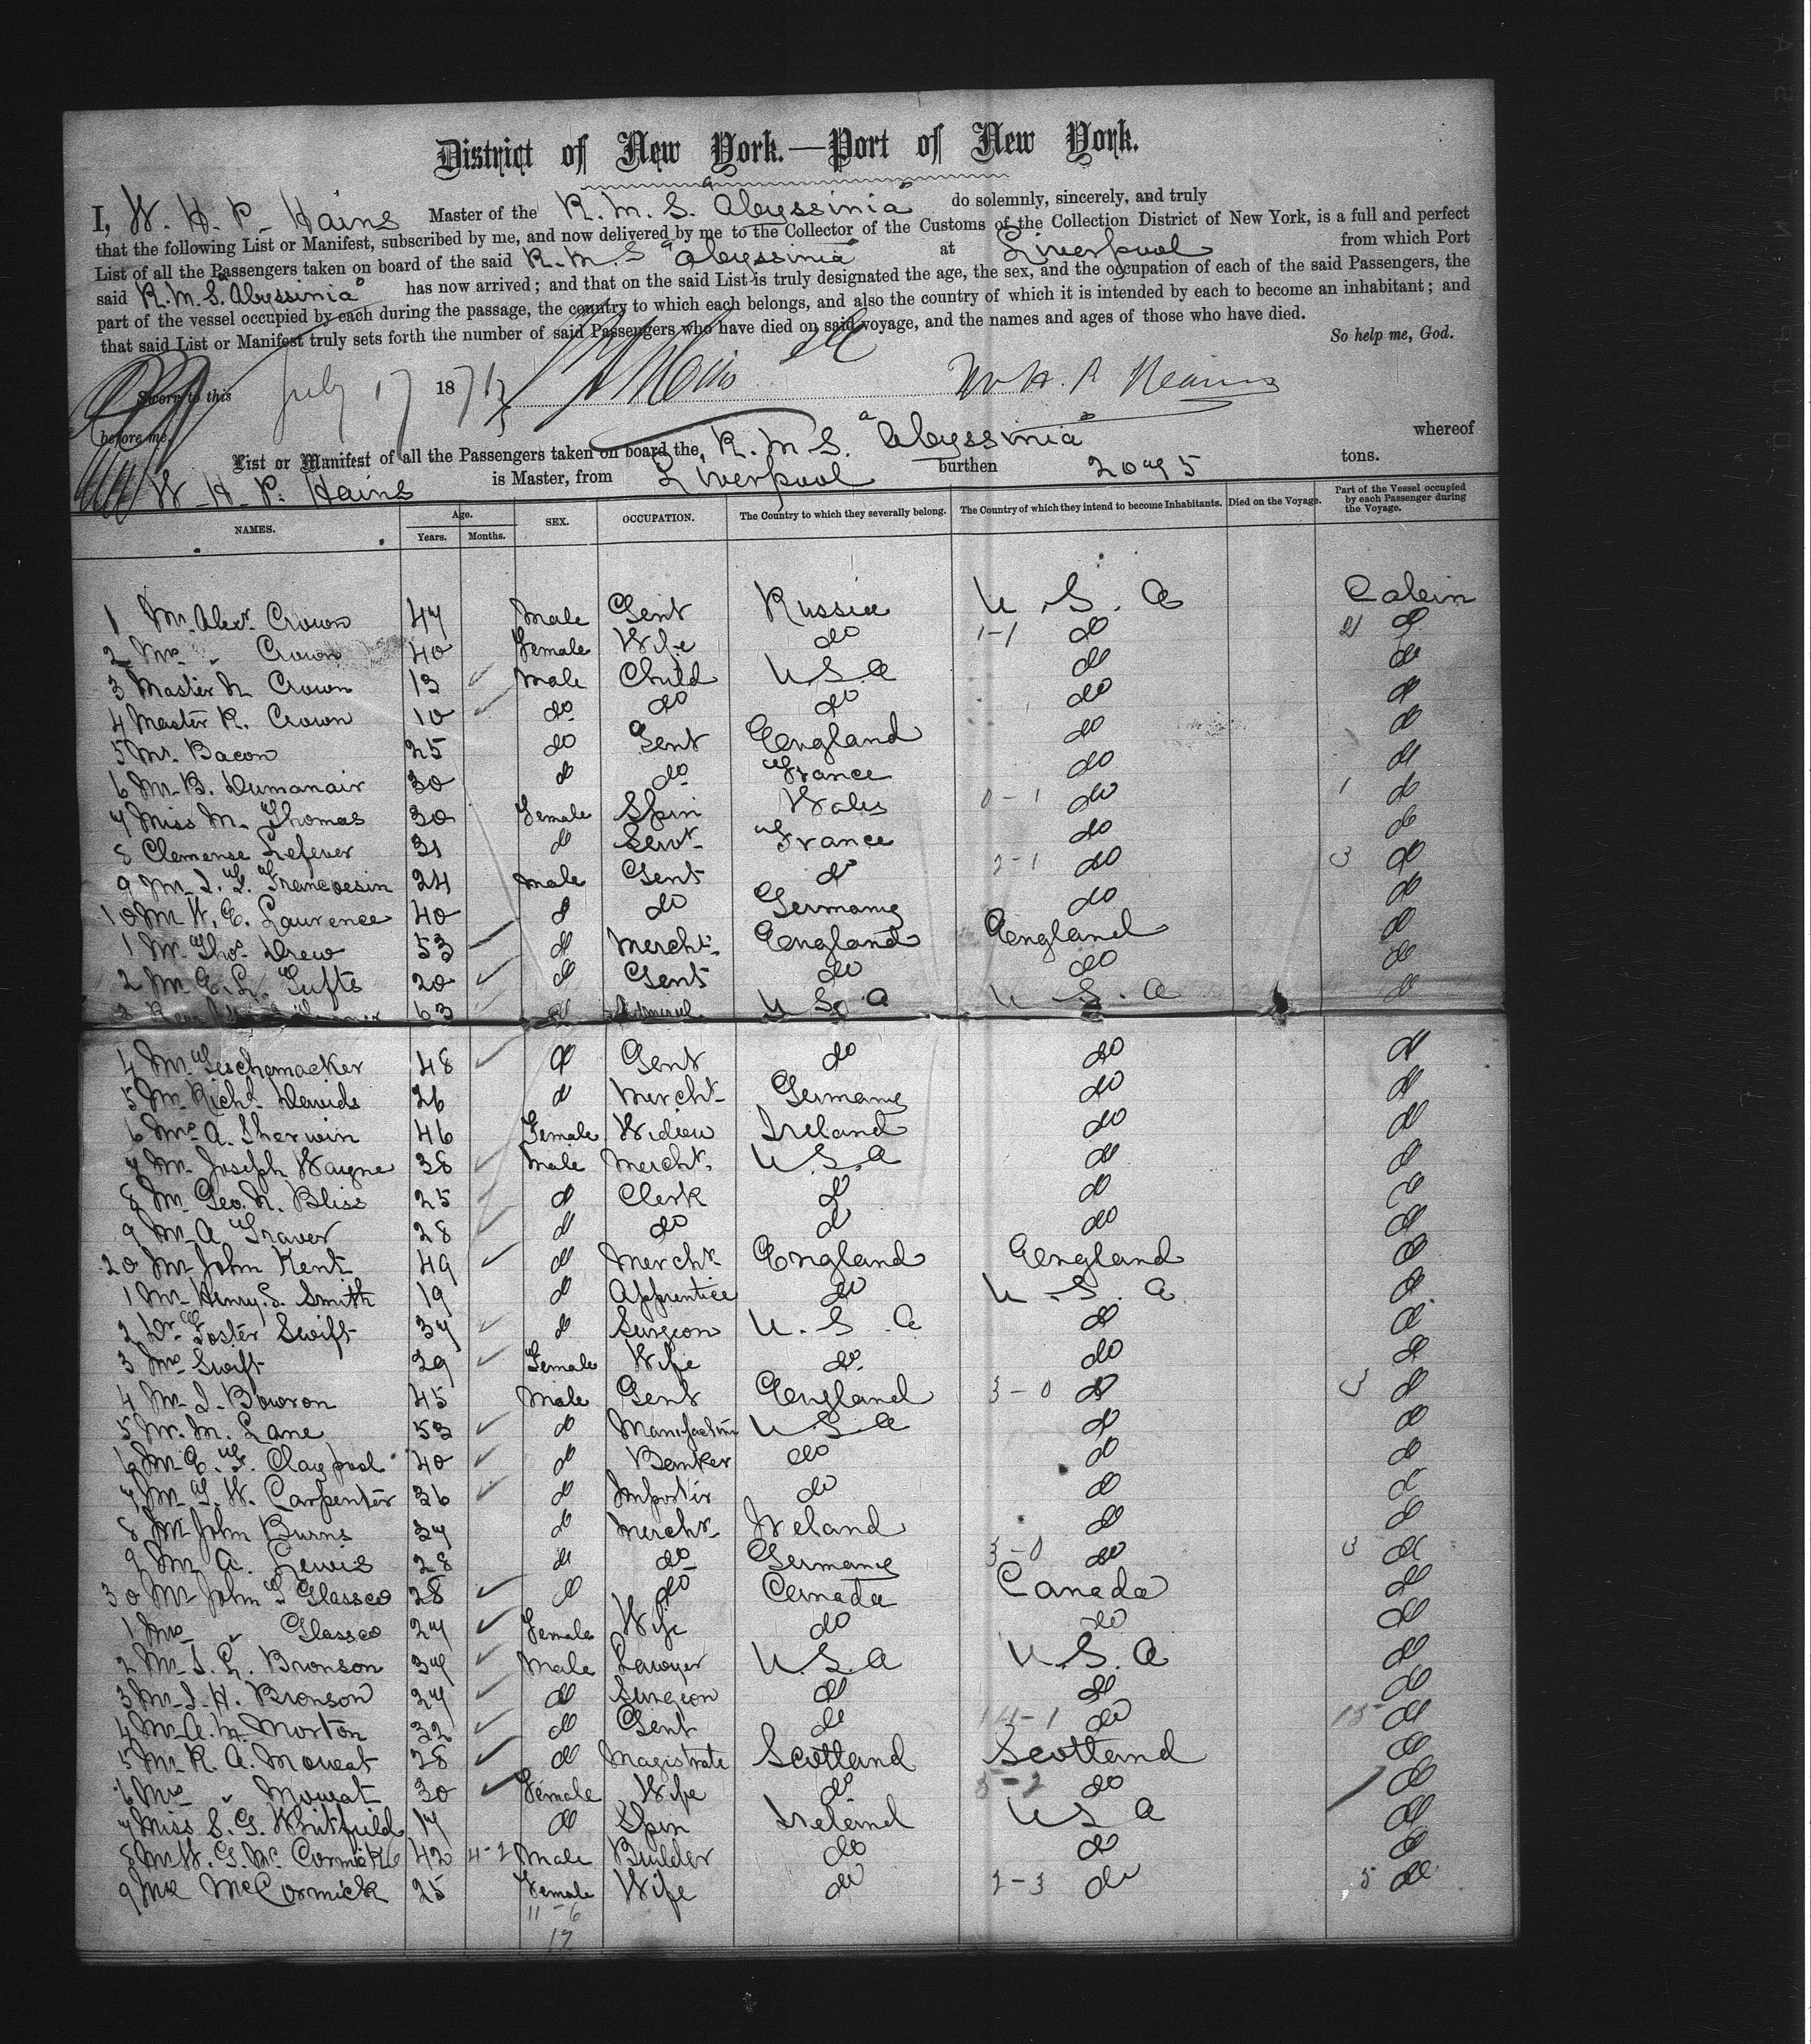 District of New York.—Port of New York.
I, W. H. P. Hains Master of the R. M. S. "Abyssinia" do solemnly, sincerely, and truly
that the following List or Manifest, subscribed by me, and now delivered by me to the Collector of the Customs of the Collection District of New York, is a full and perfect
List of all the Passengers taken on board of the said R. M. S "Abyssinia" at Liverpool from which Port
said R. M. S. Abyssinia" has now arrived; and that on the said List is truly designated the age, the sex, and the occupation of each of the said Passengers, the
part of the vessel occupied by each during the passage, the country to which each belongs, and also the country of which it is intended by each to become an inhabitant; and
that said List or Manifest truly sets forth the number of said Passengers who have died on said voyage, and the names and ages of those who have died.
So help me, God.
Sworn to this July 17 187 W. H. P. Hains
before me,
List or Manifest of all the Passengers taken on board the, R. M. S. "Abyssinia" whereof
W. H. P. Hains is Master, from Liverpool burthen 2095 tons.
NAMES. Age. Years. Months. SEX. OCCUPATION. The Country to which they severally belong. The Country of which they intend to become Inhabitants. Died on the Voyage. Part of the Vessel occupied by each Passenger during the Voyage.
1 Mr. Alexr. Crown 47 Male Gent Russia U. S. A Cabin
2 Mrs " Crown 40 Female Wife do 1-1 do 2 do
3 Master N Crown 13 Male Child U.S.A do do
4 Master R. Crown 10 do do do do do
5 Mr. Bacon 25 do Gent England do do
6 Mr B. Dumanair 30 do do France do do
7 Miss M. Thomas 30 Female Spin Wales 0-1 do 1 do
8 Clemense Lefever 31 do Servt France do do
9 Mr L. L. Francoesin 24 Male Gent do 2-1 do 3 do
10 Mr W. E. Lawrence 40 do do Germany do do
1 Mr Thos Drew 53 do Mercht England England do
2 Mr E. L. Tufts 20 do Gent do do do
3 Rear 63 do Admiral U S. A U. S. A do
4 Mr Teschemacker 48 do Gent do do do
5 Mr Richd. Davids 26 do Mercht Germany do do
6 Mrs A. Sherwin 46 Female Widow Ireland do do
7 Mr Joseph Wayne 38 Male Mercht. U.S.A do do
8 Mr Geo. N. Bliss 25 do Clerk do do do
9 Mr A Traver 28 do do do do do
20 Mr John Kent 49 do Mercht England England do
1 Mr Henry. S. Smith 19 do Apprentice do U. S. A do
2 Dr Foster Swift 37 do Surgeon U. S. A do do
3 Mrs Swift 29 Female Wife do do do
4 Mr J. Bowron 45 Male Gent England 3-0 do 3 do
5 Mr. M. Lane 53 do U.S.A do do
6 Mr E. F. Claypool 40 do Banker do do do
7 Mr G. W. Carpenter 36 do Importer do do do
8 Mr John Burns 37 do Mercht Ireland do do
9 Mr A. Lewis 28 do do Germany 3-0 do 3 do
30 Mr John T Glassco 28 do do Canada Canada do
1 Mrs " Glassco 27 Female Wife do do do
2 Mr T. L. Bronson 37 Male Lawyer U.S.A U.S.A do
3 Mr J. H. Bronson 27 do Surgeon do do do
4 Mr A. M. Morton 32 do Gent do 14-1 do 15 do
5 Mr R. A. Moueat 28 do Magistrate Scotland Scotland do
6 Mrs " Moueat 30 Female Wife do 5-2 do do
7 Miss S. G. Whitfield 17 do Spin Ireland U S A do
8 Mr W. G. Mc Cormick 42 4-2 Male Builder do do do
9 Mrs McCormick 25 Female Wife do 2-3 do 5 do
11-6
17